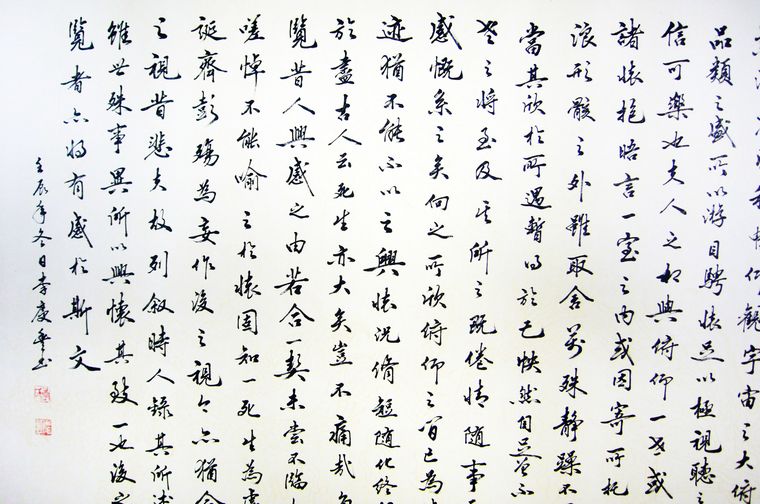 和暢仰觀宇宙之大俯
品類之盛所以游目騁懷足以極視聽之
信可樂也夫人之相與俯仰一世或
諸懷抱晤言一室之內或因寄所托
浪形骸之外雖取舍萬殊靜躁不
當其欣於所遇暫得於己怏然自足曾不
老之將至及其所之既倦情隨事
感慨系之矣向之所欣俯仰之間已為
迹猶不能不以之興懷況脩短隨化終
於盡古人云死生亦大矣豈不痛哉
覽昔人興感之由若合一契未嘗不臨
嗟悼不能喻之於懷固知一死生為
誕齊彭殤為妄作後之視今亦猶今
之視昔悲夫故列敘時人錄其所述
雖世殊事異所以興懷其致一也後之
覽者亦將有感於斯文
壬辰年冬日李慶書